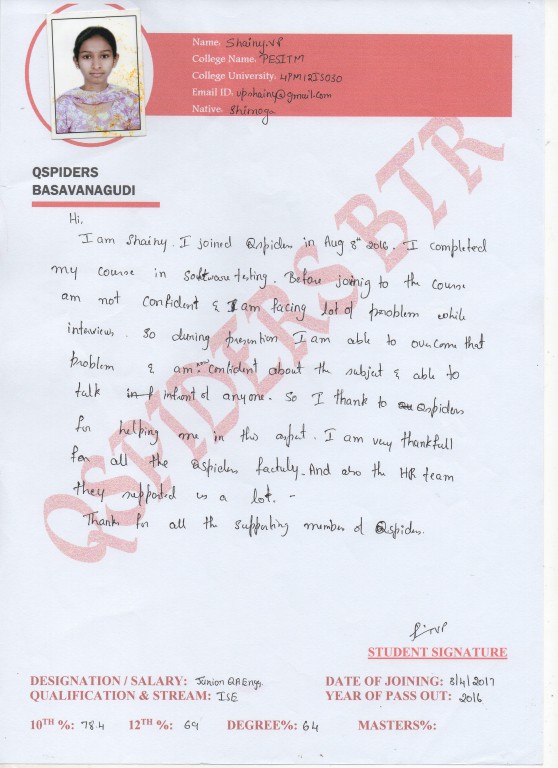 Name: Shainy.VP
College Name: PESITM
College University: 4PM12IS030
Email ID: vpshainy@gmail.com
Native: Shimoga
QSPIDERS
BASAVANAGUDI
QSPIDERS BTR
Hi,
I am Shainy. I joined Qspiders in Aug 8th 2016. I completed
my course in Software testing. Before joinig to the course
am not confident & I am facing lot of problem while
interviews. So during presention I am able to overcome that
problem & am now confident about the subject & able to
talk infront of anyone. So I thank to Qspiders
for helping me in this aspect. I am very thankfull
for all the Qspiders factuly. And also the HR team
they supported us a lot. -
Thanks for all the supporting member of Qspiders.
STUDENT SIGNATURE
DESIGNATION / SALARY: Junior QA Engg.
DATE OF JOINING: 3/4/2017
QUALIFICATION & STREAM: ISE
YEAR OF PASS OUT: 2016
10TH %: 78.4 12TH %: 69 DEGREE%: 64 MASTERS%: